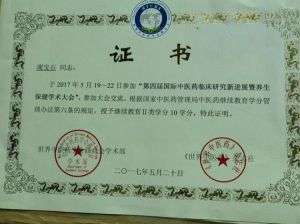 证 书
同志：
于 2017 年 5 月 19－22 日参加“第四届国际中医药临床研究新进展暨养生
保健学术大会”，参加大会交流。根据国家中医药管理局中医药继续教育学分管
理办法第六条的规定，授予继续教育Ⅱ类学分 10 学分。特此证明。
学术部
二〇一七年五月二十日